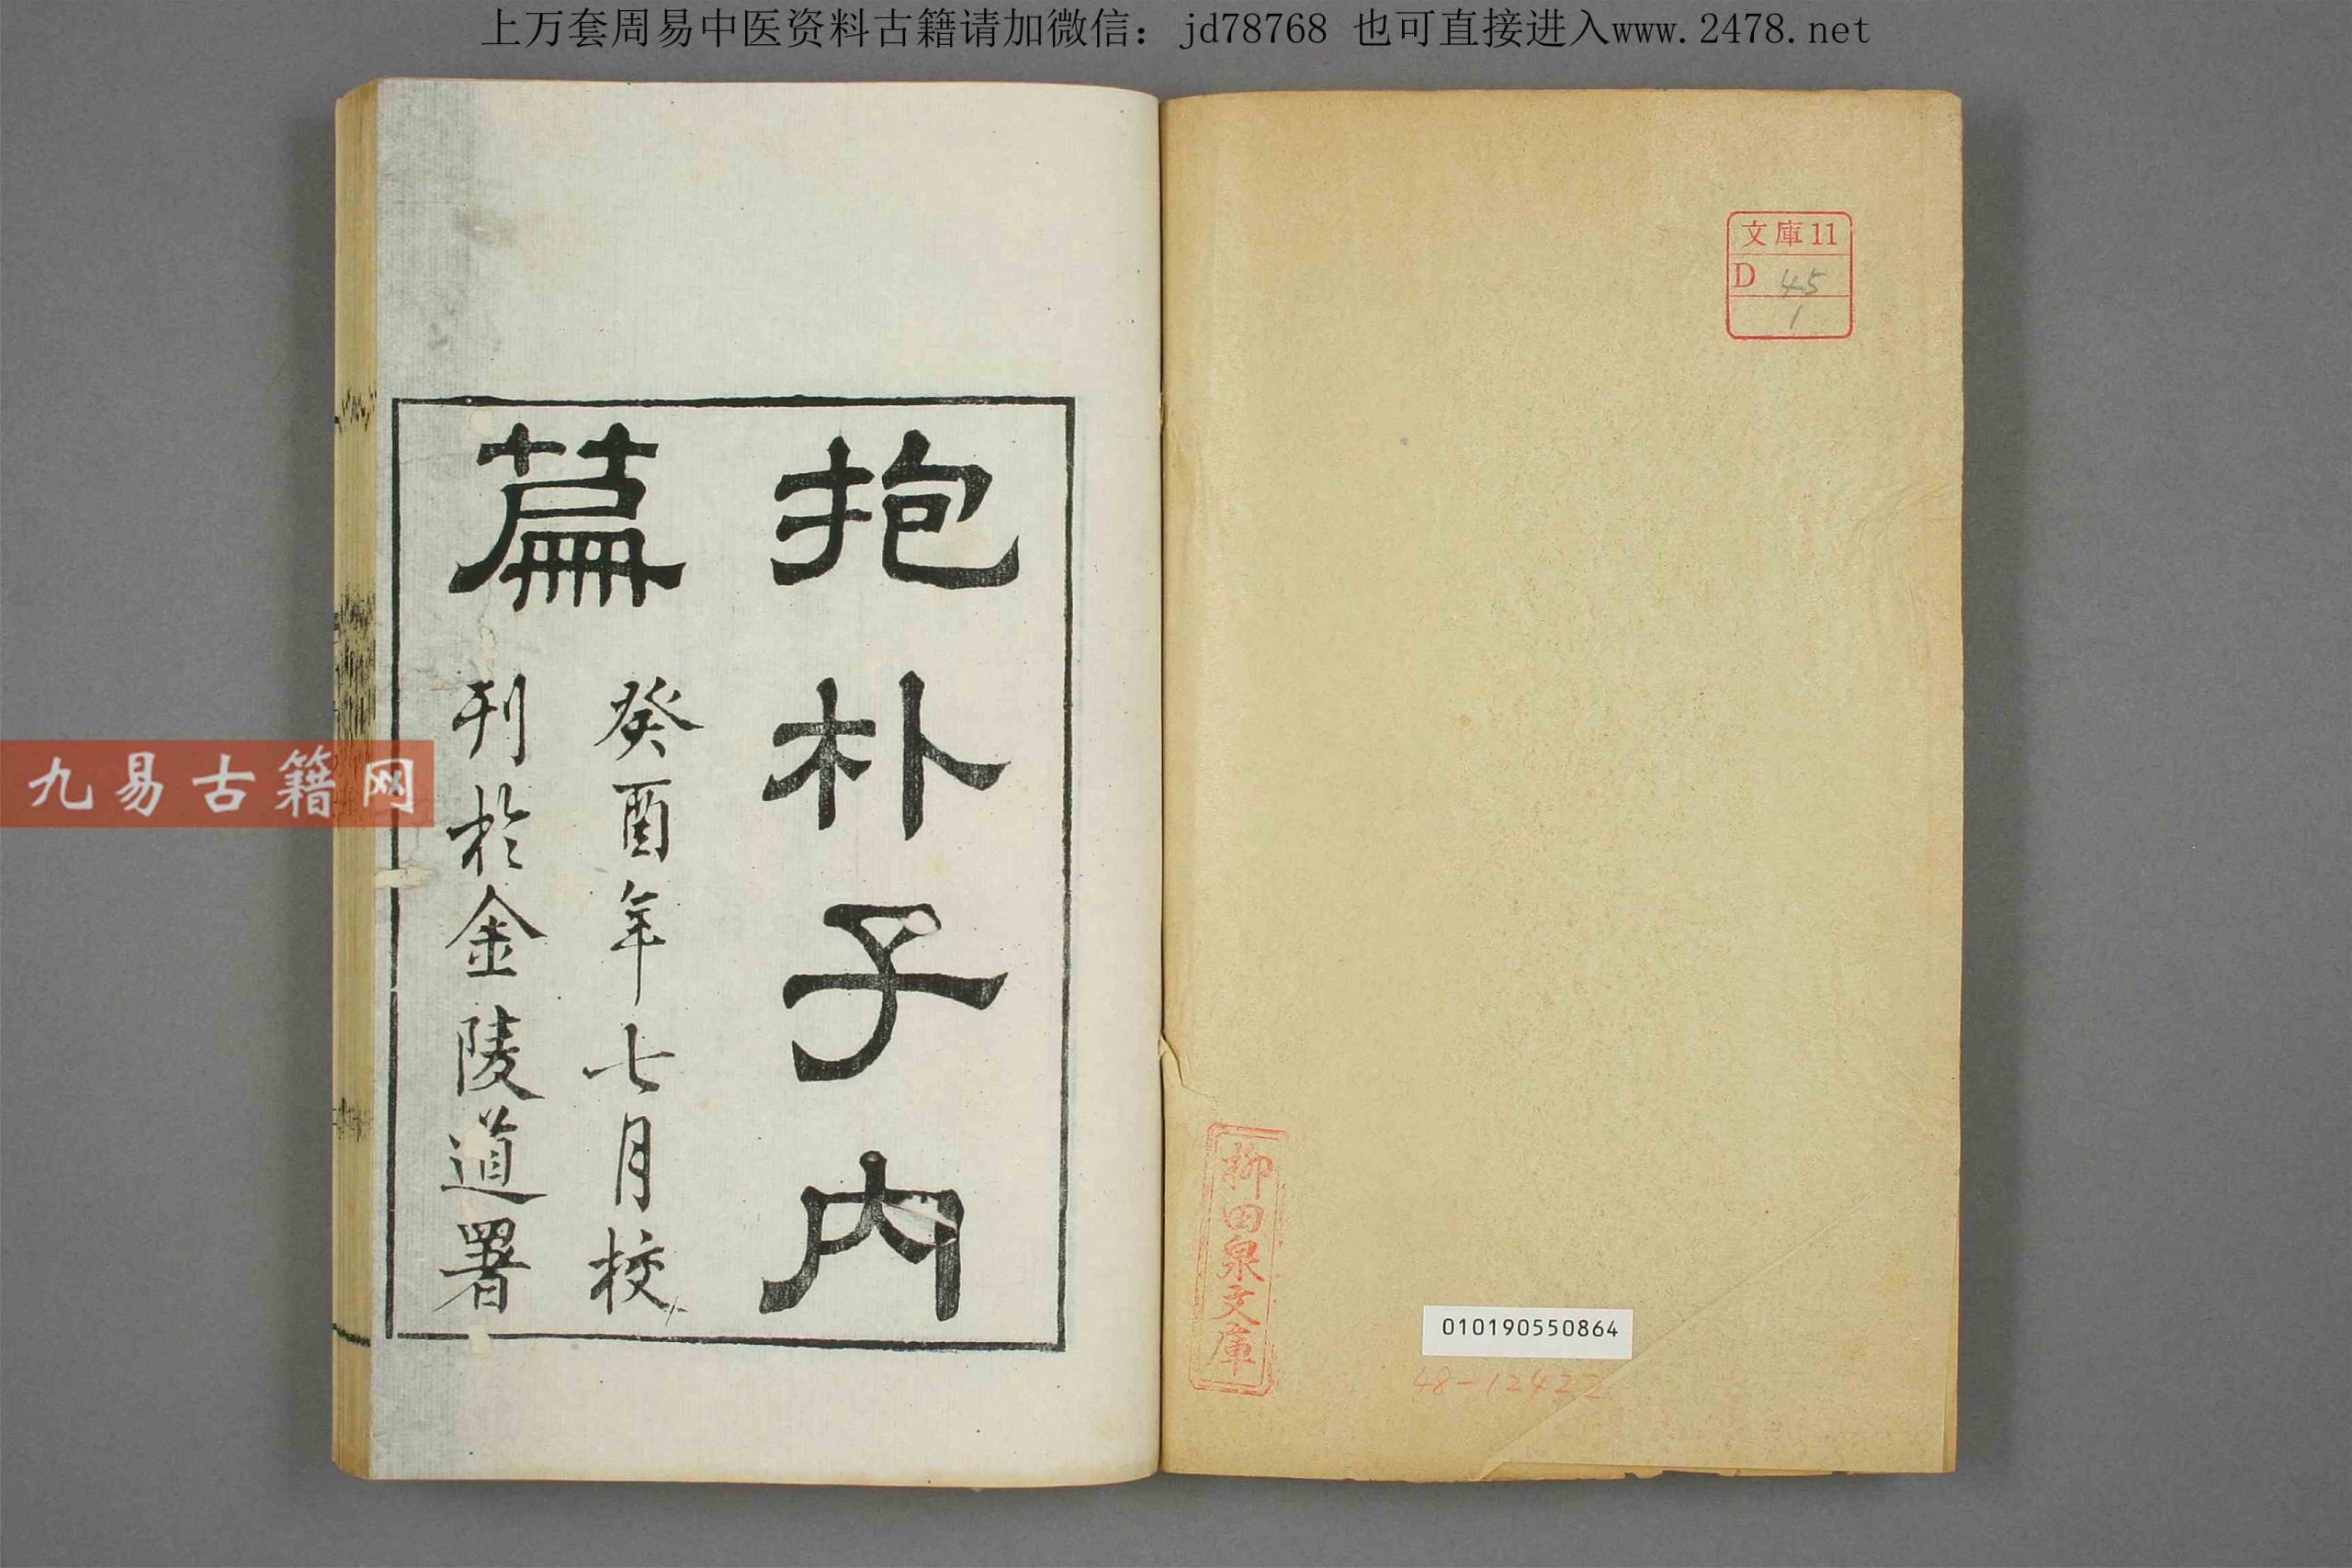 上万套周易中医资料古籍请加微信：jd78768 也可直接进入www.2478.net
文庫11
D 45
1
柳田泉文庫
010190550864
48-12422
抱朴子内
篇
癸酉年七月校
刊於金陵道署
九易古籍网